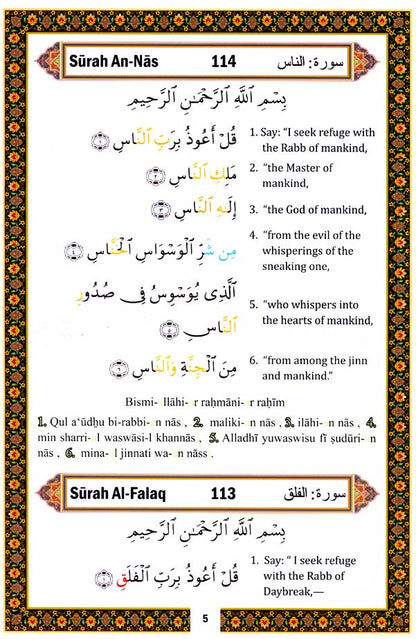 Sūrah An-Nās 114 سورة: الناس
بِسْمِ ٱللَّهِ ٱلرَّحْمَـٰنِ ٱلرَّحِيمِ
قُلْ أَعُوذُ بِرَبِّ ٱلنَّاسِ ١
1. Say: “I seek refuge with
the Rabb of mankind,
مَلِكِ ٱلنَّاسِ ٢
2. “the Master of
mankind,
إِلَـٰهِ ٱلنَّاسِ ٣
3. “the God of mankind,
مِن شَرِّ ٱلْوَسْوَاسِ ٱلْخَنَّاسِ ٤
4. “from the evil of the
whisperings of the
sneaking one,
ٱلَّذِى يُوَسْوِسُ فِى صُدُورِ
ٱلنَّاسِ ٥
5. “who whispers into
the hearts of mankind,
مِنَ ٱلْجِنَّةِ وَٱلنَّاسِ ٦
6. “from among the jinn
and mankind.”
Bismi- llāhi- r raḥmāni- r raḥīm
1. Qul a‘ūdhu bi-rabbi- n nās , 2. maliki- n nās , 3. ilāhi- n nās , 4.
min sharri- l waswāsi-l khannās , 5. Alladhī yuwaswisu fī ṣudūri- n
nās , 6. mina- l jinnati wa- n nāss .
Sūrah Al-Falaq 113 سورة: الفلق
بِسْمِ ٱللَّهِ ٱلرَّحْمَـٰنِ ٱلرَّحِيمِ
قُلْ أَعُوذُ بِرَبِّ ٱلْفَلَقِ ١
1. Say: “ I seek refuge
with the Rabb of
Daybreak,—
5